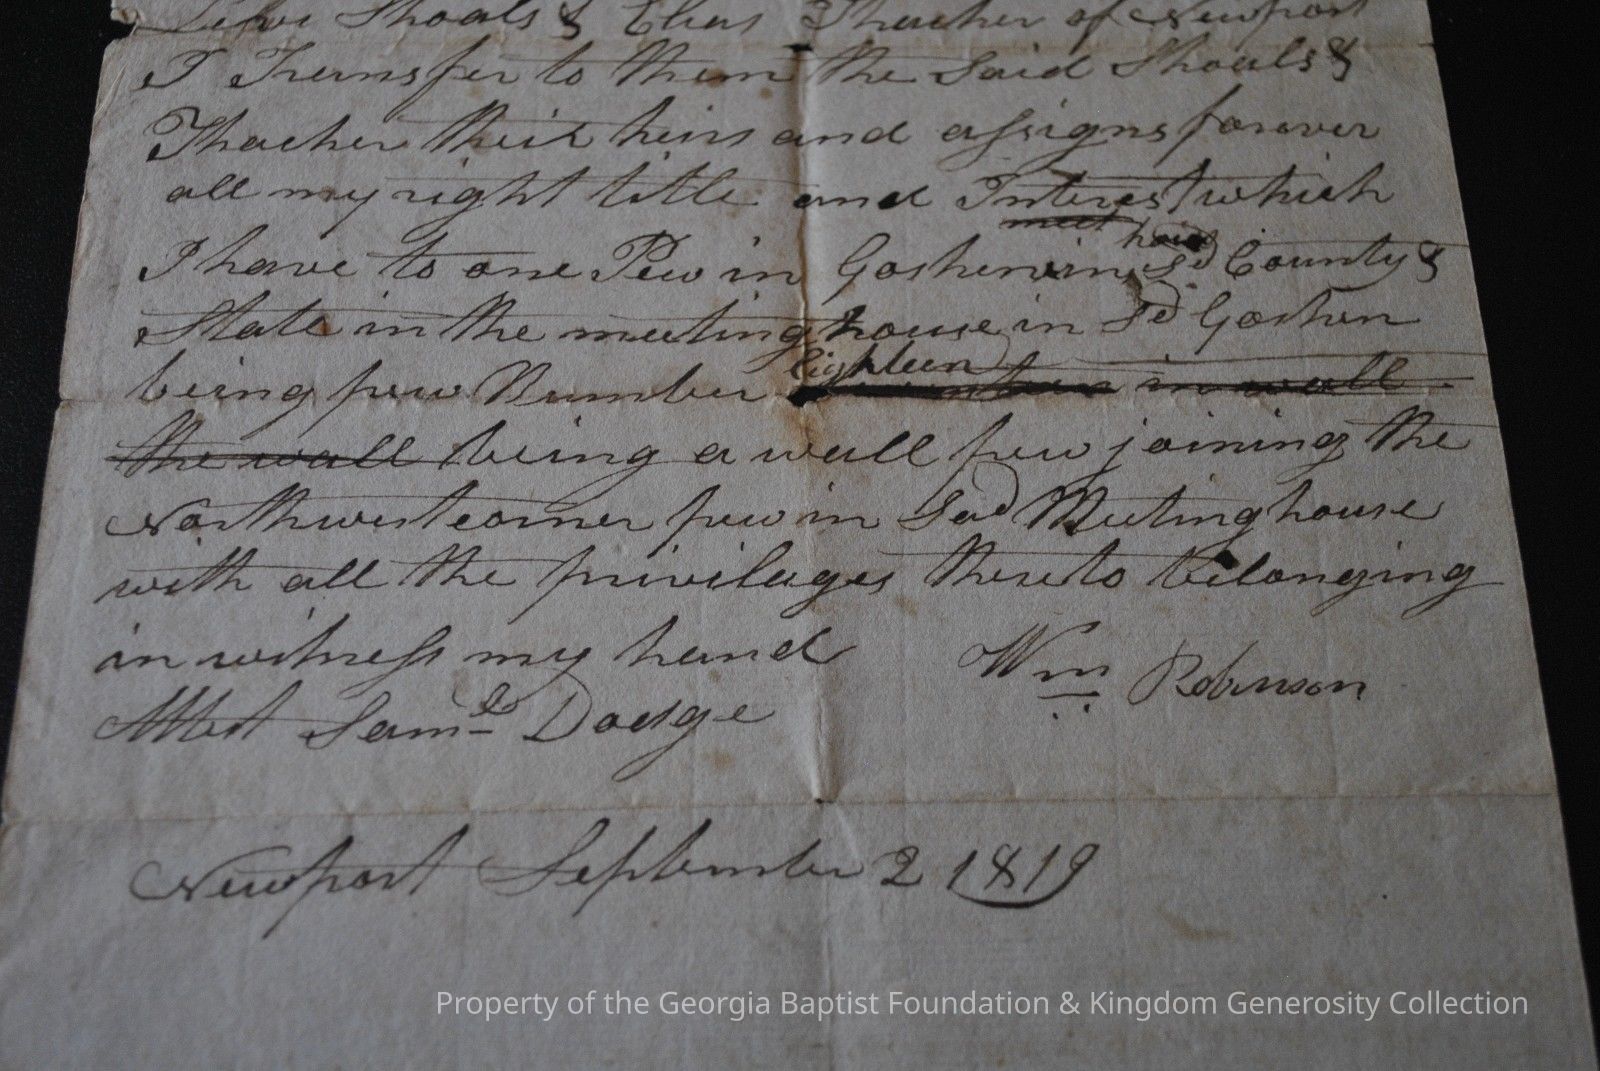 Shoals & Elias Thacher of Newport
I Transfer to them the Said Shoals &
Thacher their heirs and assigns forever
all my right title and Interest which
meet house
I have to one Pew in Goshen in Sd County &
State in the meeting house in Sd Goshen
Eighteen
being pew Number in wall
the wall being a wall pew joining the
Northwest corner pew in Said Meeting house
with all the privilages thereto belonging
in witness my hand Wm Robinson
Attest Saml Dodge
Newport September 2 1819
Property of the Georgia Baptist Foundation & Kingdom Generosity Collection